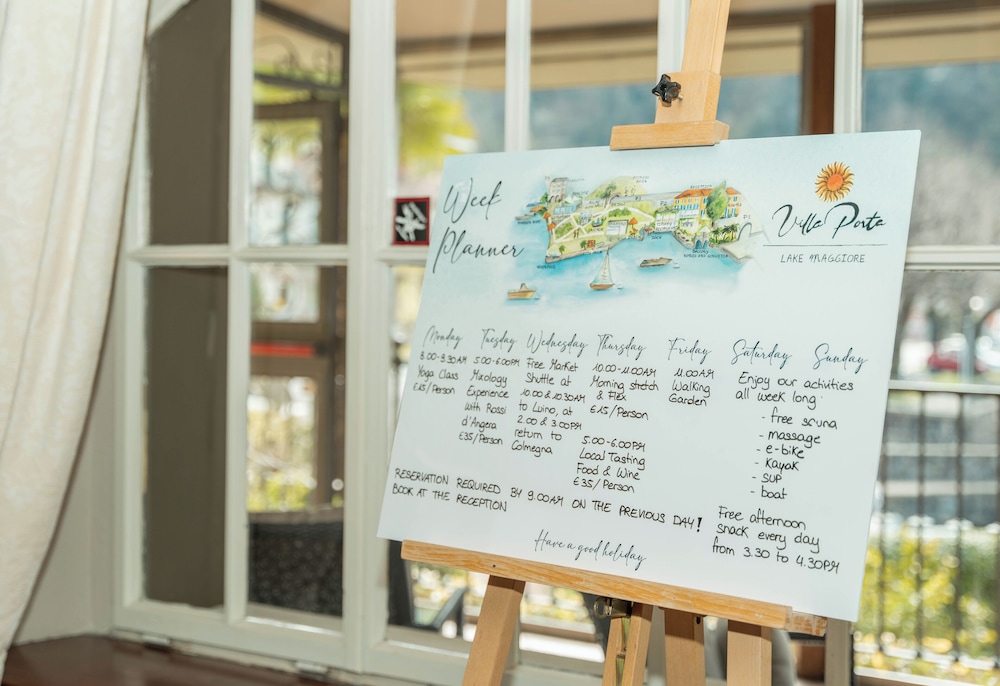 Week
Planner
Villa Porta
LAKE MAGGIORE
Monday
8.00-8.30AM
Yoga Class
€15/Person
Tuesday
5.00-6.00PM
Mixology
Experience
with Rossi
d'Angera
€35/Person
Wednesday
Free Market
Shuttle at
10.00 & 10.30AM
to Luino, at
2.00 & 3.00PM
return to
Colmegna
Thursday
10.00-11.00AM
Morning stretch
& Flex
€15/Person
5.00-6.00PM
Local Tasting
Food & Wine
€35/Person
Friday
11.00AM
Walking
Garden
Saturday Sunday
Enjoy our activities
all week long
- free sauna
- massage
- e-bike
- kayak
- SUP
- boat
Free afternoon
snack every day
from 3.30 to 4.30PM
RESERVATION REQUIRED BY 9.00AM ON THE PREVIOUS DAY!
BOOK AT THE RECEPTION
Have a good holiday